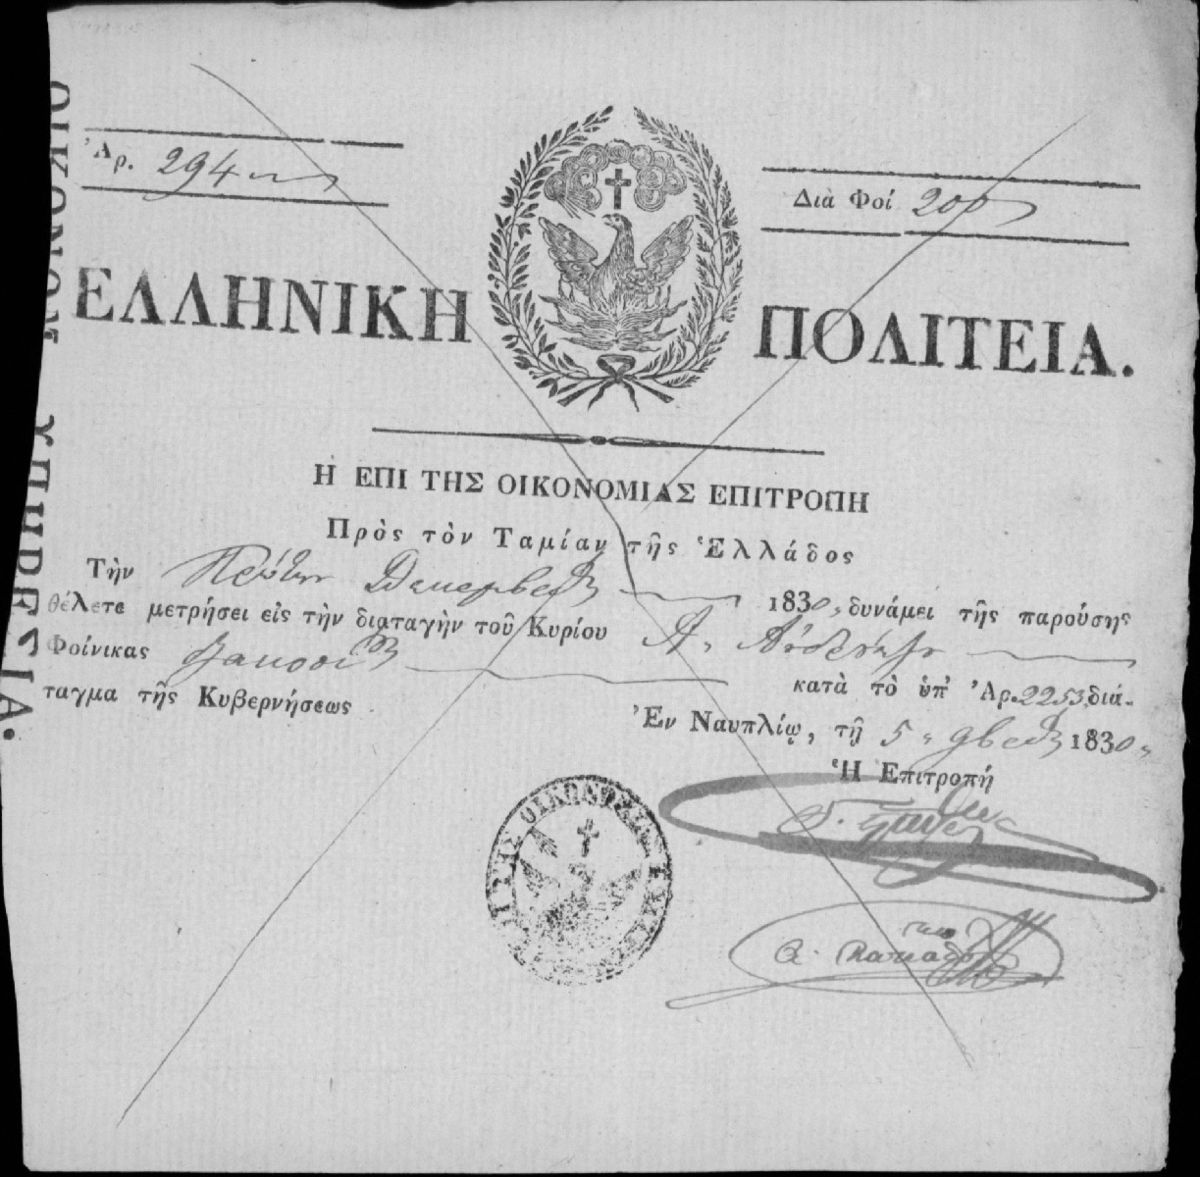 ΟΙΚΟΝΟΜ ΥΠΗΡΕΣΙΑ.
Ἀρ. 294
Διὰ Φοί 200
ΕΛΛΗΝΙΚΗ ΠΟΛΙΤΕΙΑ.
Η ΕΠΙ ΤΗΣ ΟΙΚΟΝΟΜΙΑΣ ΕΠΙΤΡΟΠΗ
Πρὸς τὸν Ταμίαν τῆς Ἑλλάδος
Τὴν Πρώτην Δεκεμβρίου 1830, δυνάμει τῆς παρούσης
θέλετε μετρήσει εἰς τὴν διαταγὴν τοῦ Κυρίου Α.
Φοίνικας διακοσίους κατὰ τὸ ὑπ' Ἀρ. 2253, διά-
ταγμα τῆς Κυβερνήσεως
Ἐν Ναυπλίῳ, τῇ 5, 9βρίου 1830,
Ἡ Ἐπιτροπή